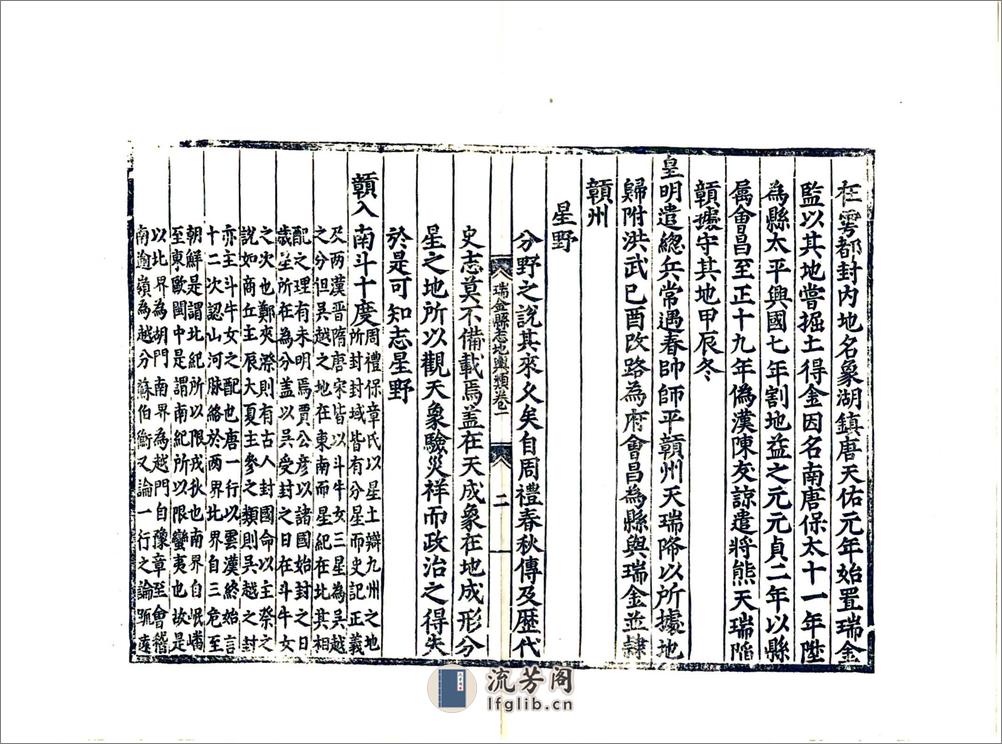 在雩都封內地名象湖鎮唐天佑元年始置瑞金
監以其地嘗掘土得金因名南唐保太十一年陞
為縣太平興國七年割地益之元元貞二年以縣
属會昌至正十九年偽漢陳友諒遣將熊天瑞陷
贑㩀守其地甲辰冬
皇明遣緫兵常遇春帥師平贑州天瑞降以所㩀地
歸附洪武己酉改路為府會昌為縣與瑞金並隷
贑州
星野
分野之說其來乆矣自周禮春秋傳及歷代
瑞金縣志地輿類卷一
二
史志莫不備載焉盖在天成象在地成形分
星之地所以觀天象驗災祥而政治之得失
於是可知志星野
贑入南斗十度
周禮保章氏以星土辯九州之地
所封封域皆有分星而史記正義
及两漢晋隋唐宋皆以斗牛女三星為吳越
之分但吳越之地在東南而星紀在北其相
配之理有未明焉賈公彦以諸國始封之日
歲星所在為分盖以吳受封之日在斗牛女
之次也鄭夾漈則有古人封國命以主祭之
說如商丘主辰大夏主參之類則吳越之封
亦主斗牛女之配也唐一行以雲漢終始言
十二次認山河脉絡於两界北界自三危至
朝鮮是謂北紀所以限戎狄也南界自岷嶓
至東甌閩中是謂南紀所以限蠻夷也故是
以北界為胡門南界為越門自豫章至會稽
南逾嶺為越分蘇伯衡又論一行之論䟽逺
流芳阁
lfglib.cn